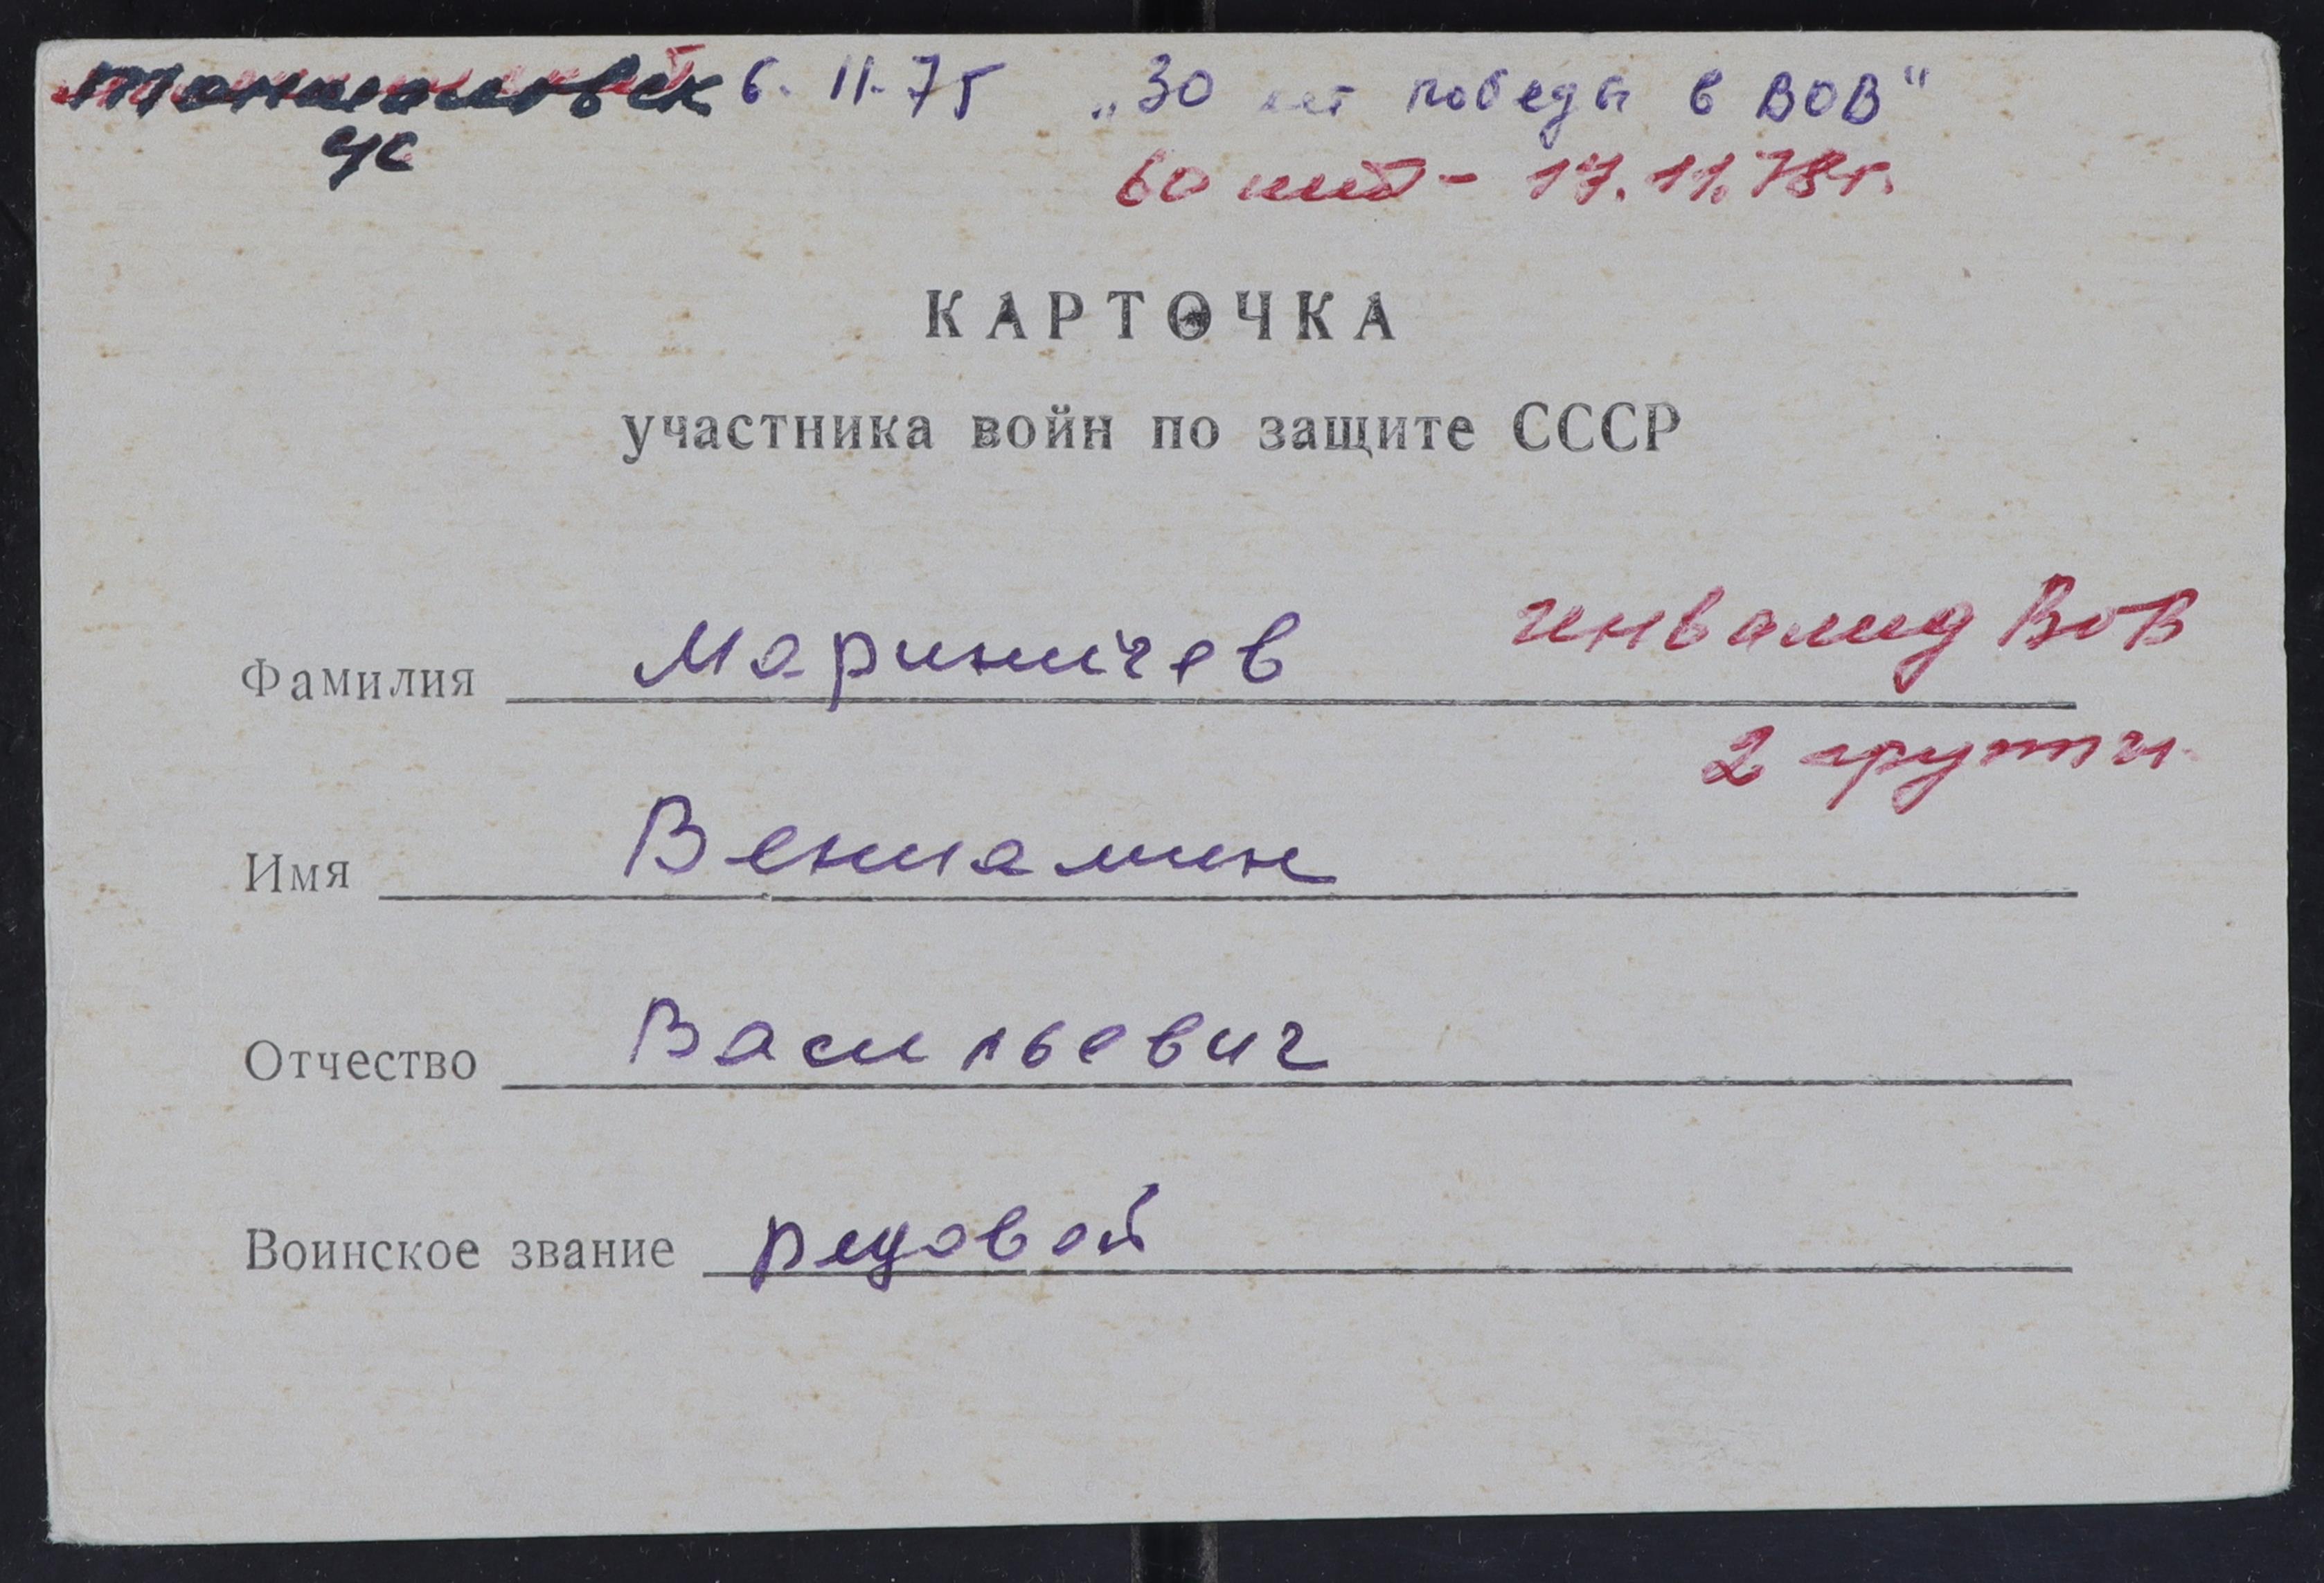 6. 11. 75 „30 лет победы в ВОВ"
ус
60 лет - 17. 11. 78 г.
КАРТОЧКА
участника войн по защите СССР
инвалид ВОВ
Фамилия Мариничев
2 группы
Имя Вениамин
Отчество Васильевич
Воинское звание рядовой